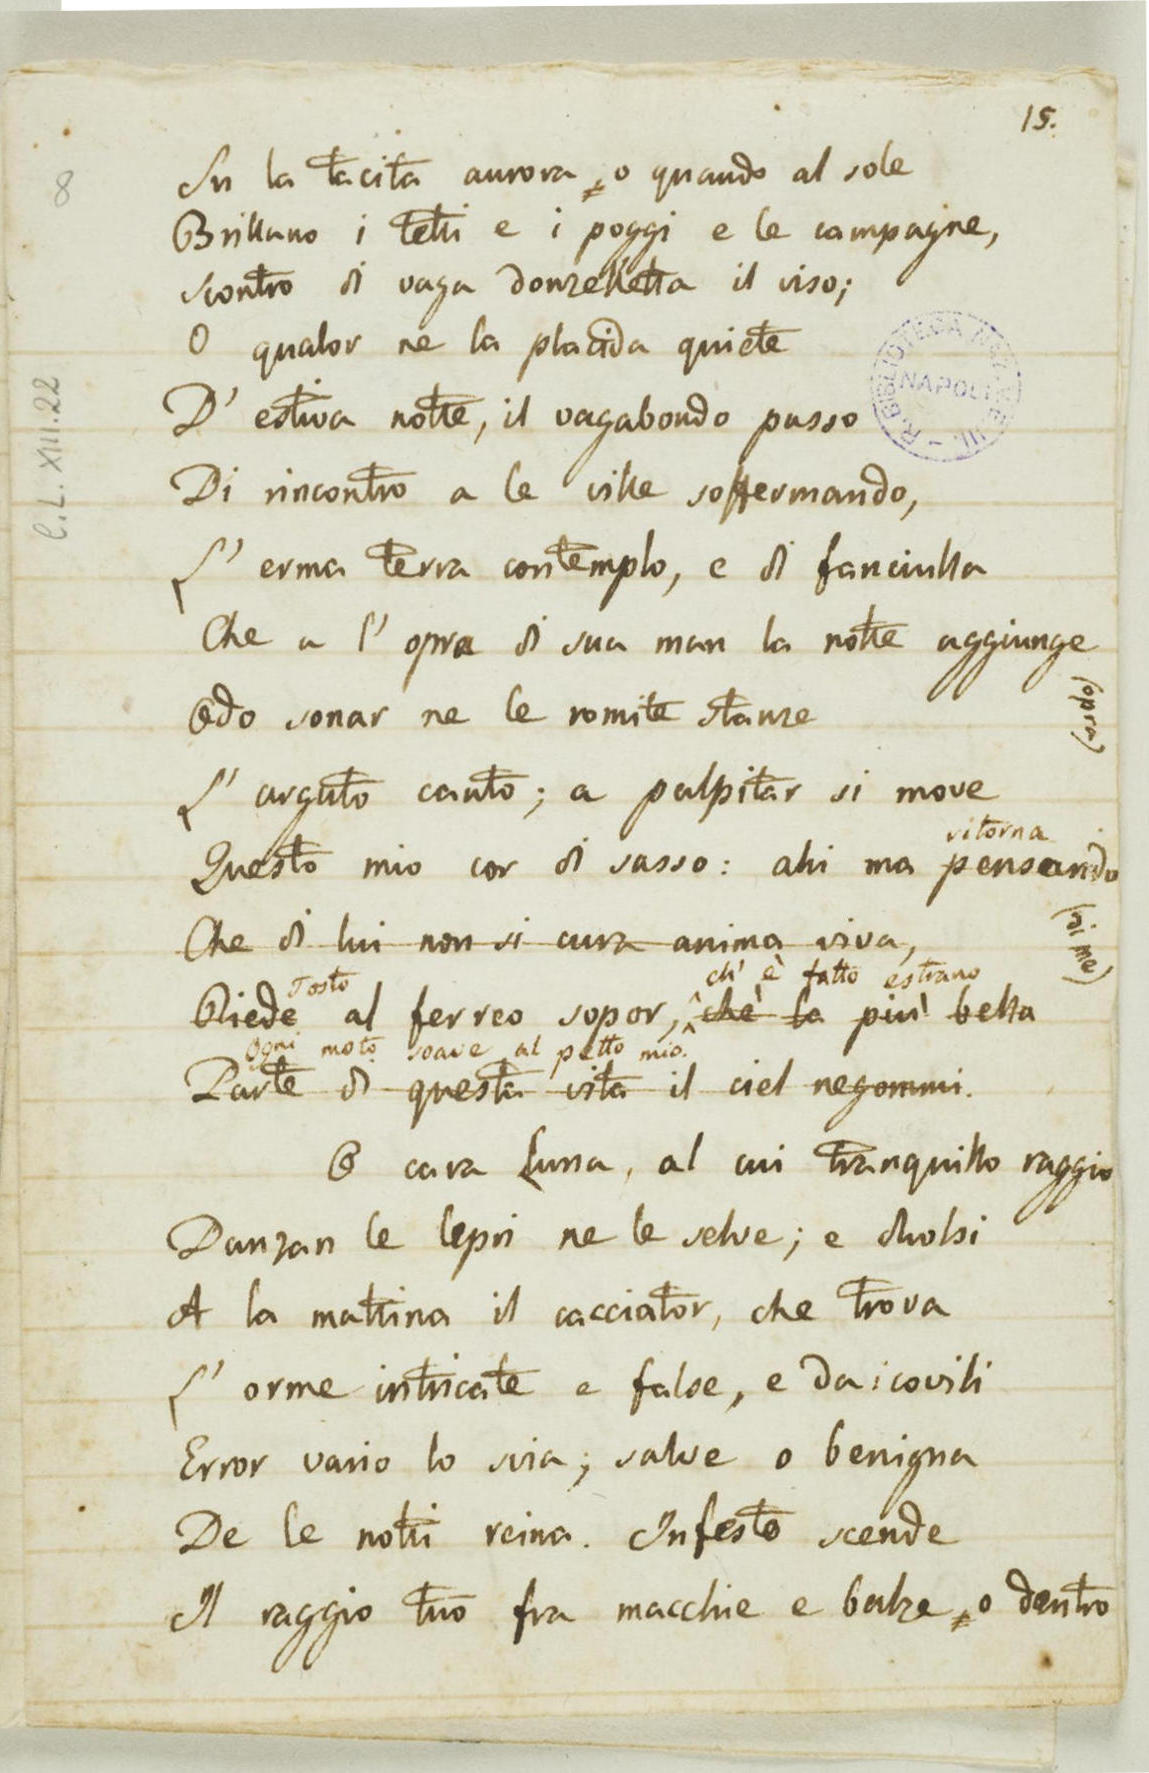 15.
8
In la tacita aurora, o quando al sole
Brillano i tetti e i poggi e le campagne,
Scontro di vaga donzelletta il viso;
O qualor ne la placida quiete
D' estiva notte, il vagabondo passo
Di rincontro a le ville soffermando,
L' erma terra contemplo, e di fanciulla
Che a l' opra di sua man la notte aggiunge
(opra)
Odo sonar ne le romite stanze
L' arguto canto; a palpitar si move
ritorna
Questo mio cor di sasso: ahi ma pensando
Che di lui non si cura anima viva,
(di me)
Tosto
ch' è fatto estrano
Riede al ferreo sopor, chè la più bella
Ogni moto soave al petto mio.
Parte di questa vita il ciel negommi.
O cara Luna, al cui tranquillo raggio
Danzan le lepri ne le selve; e duolsi
A la mattina il cacciator, che trova
L' orme intricate e false, e dai covili
Error vario lo svia; salve o benigna
De le notti reina. Infesto scende
Il raggio tuo fra macchie e balze, o dentro
C.L. XIII.22
R. BIBLIOTECA NAZ. VIT. EM. III. NAPOLI